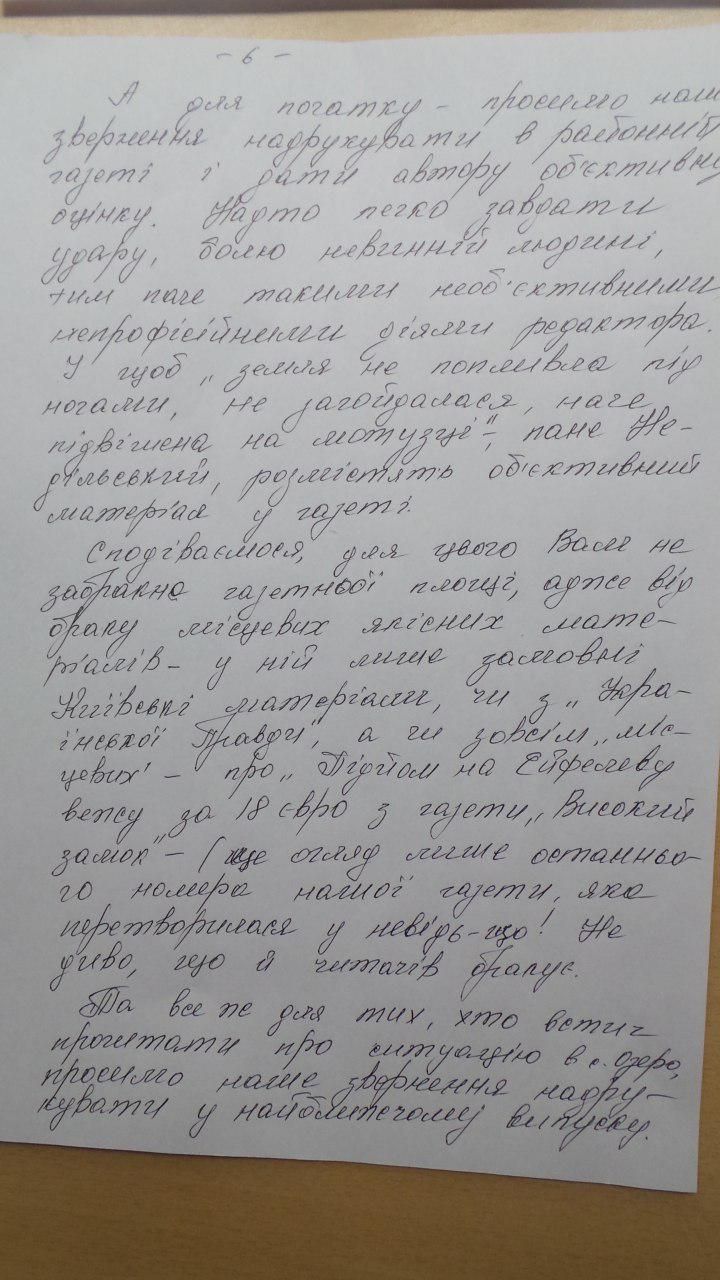 - 6 -
А для початку - просимо наше
звернення надрукувати в районній
газеті і дати автору об'єктивну
оцінку. Надто легко завдати
удару, болю невинній людині,
тим паче такими необ'єктивними
непрофісійними діями редактора.
І щоб „земля не попливла під
ногами, не загойдалася, наче
підвішена на мотузці" -, пане Не-
дільський, розмістять об'єктивний
матеріал у газеті.
Сподіваємося, для цього Вам не
забракне газетної площі, адже від
браку місцевих якісних мате-
ріалів - у ній лише замовні
Київські матеріали, чи з „Укра-
їнської Правди", а чи зовсім „міс-
цевих" - про „Підйом на Ейфелеву
вежу за 18 євро з газети „Високий
замок" - (це огляд лише останньо-
го номера нашої газети, яка
перетворилася у невідь-що! Не
диво, що й читачів бракує.
Та все ж для тих, хто встиг
прочитати про ситуацію в с. Озеро,
просимо наше звернення надру-
кувати у найближчому випуску.